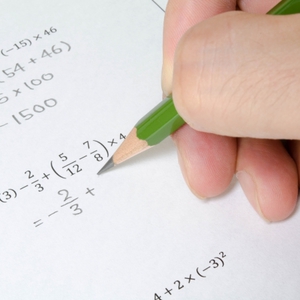 (−15) × 46
(54 + 46)
5 × 100
−1500
(3) −2/3 + (5/12 − 7/8) × 4
= −2/3 +
4 + 2 × (−3)²